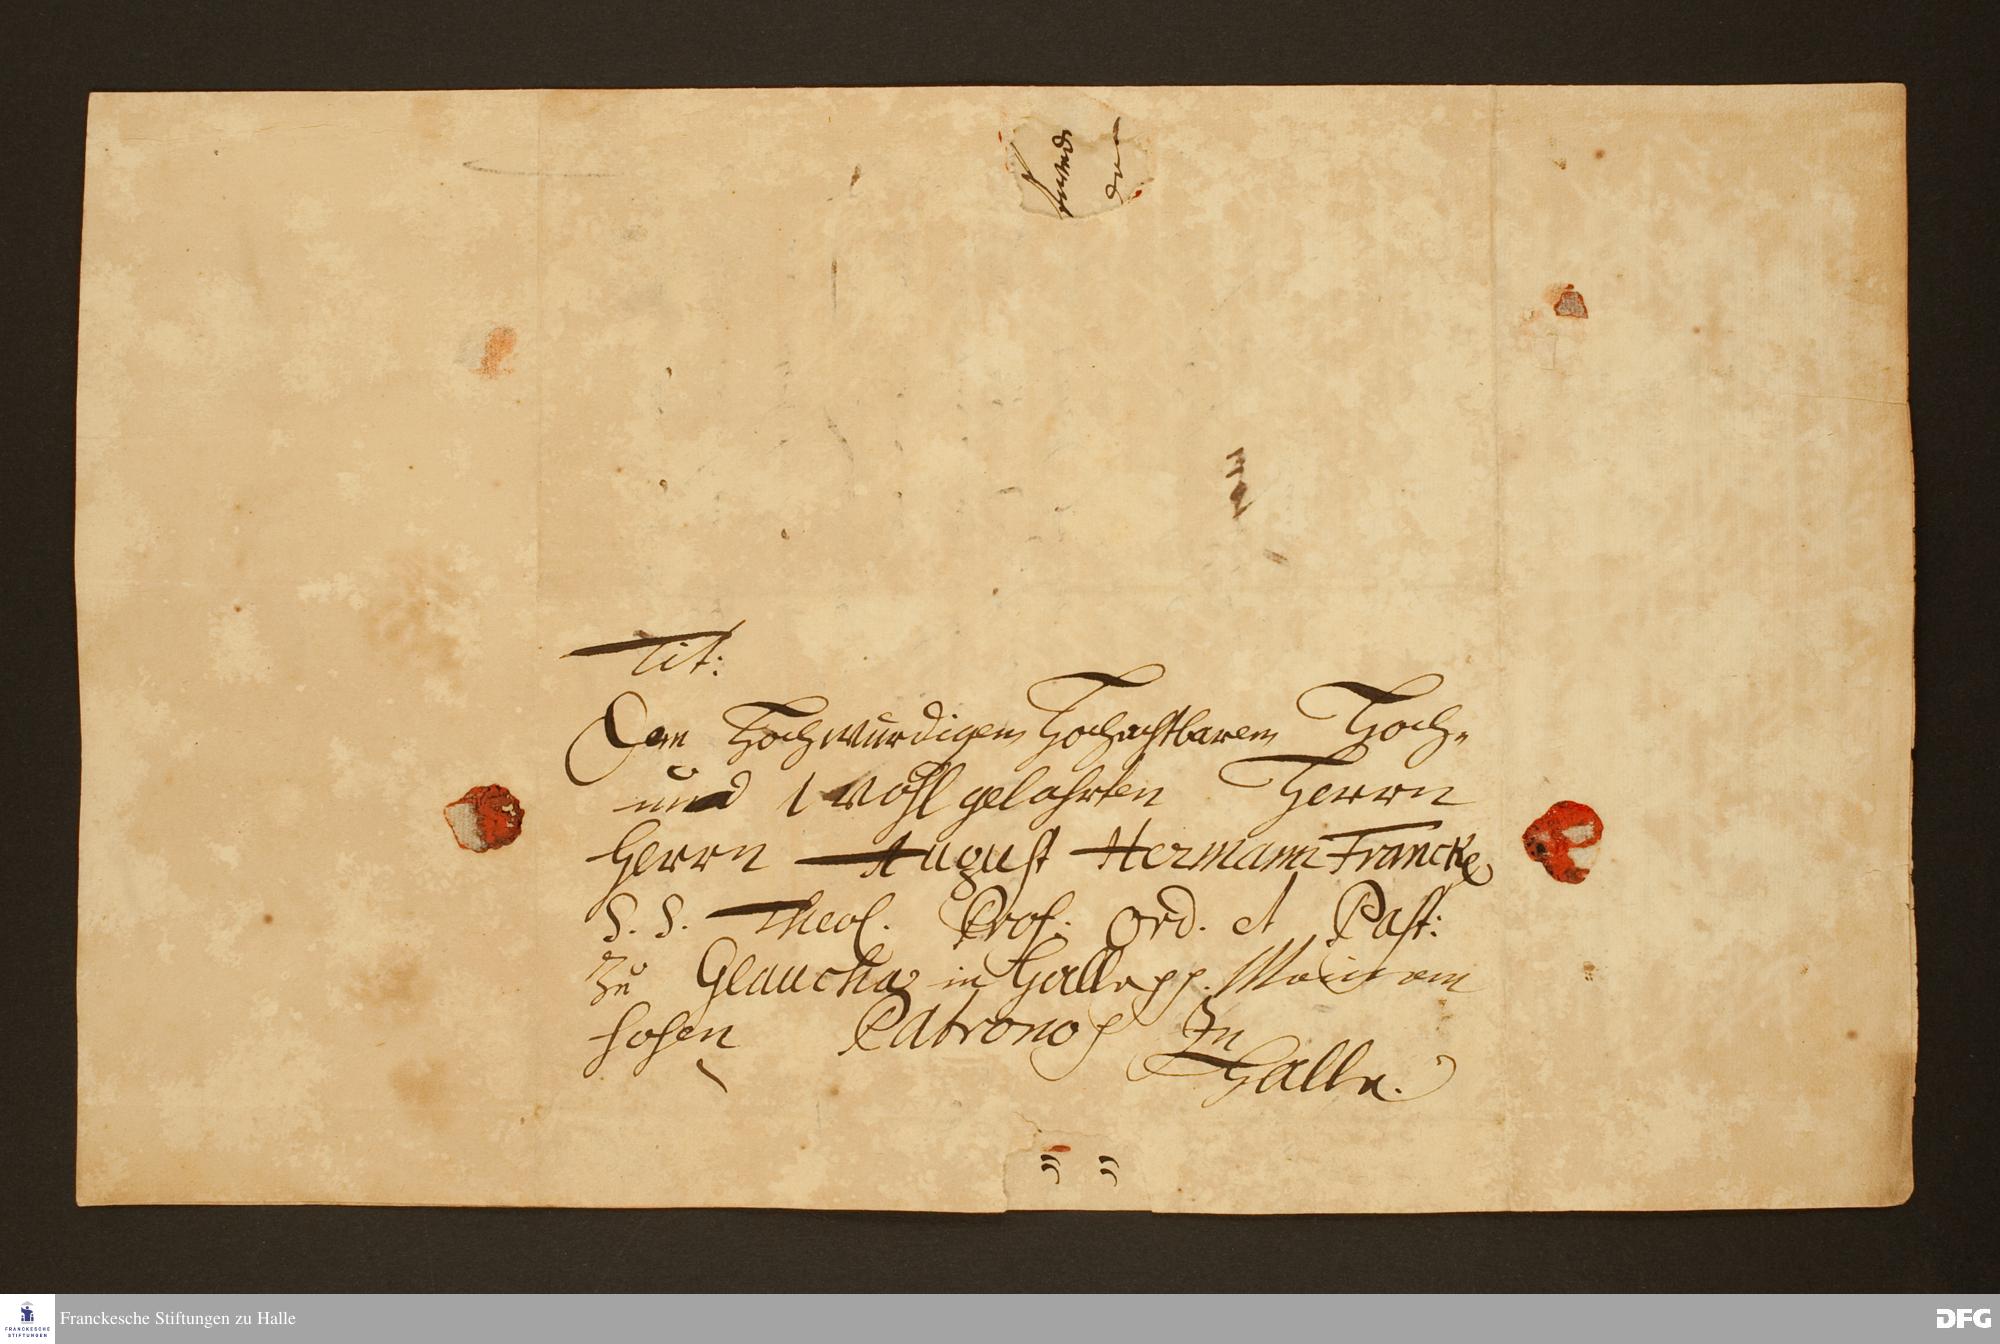 Tit:
Dem Hochwürdigen Hochachtbaren Hoch-
und Wohlgelahrten Herrn
Herrn August Hermann Francke
S. S. Theol. Prof. ord. et Past:
Zu Glaucha in Halle pp. Meinem
hohen Patrono
In
Halle.
FRANCKESCHE
STIFTUNGEN
Franckesche Stiftungen zu Halle
DFG